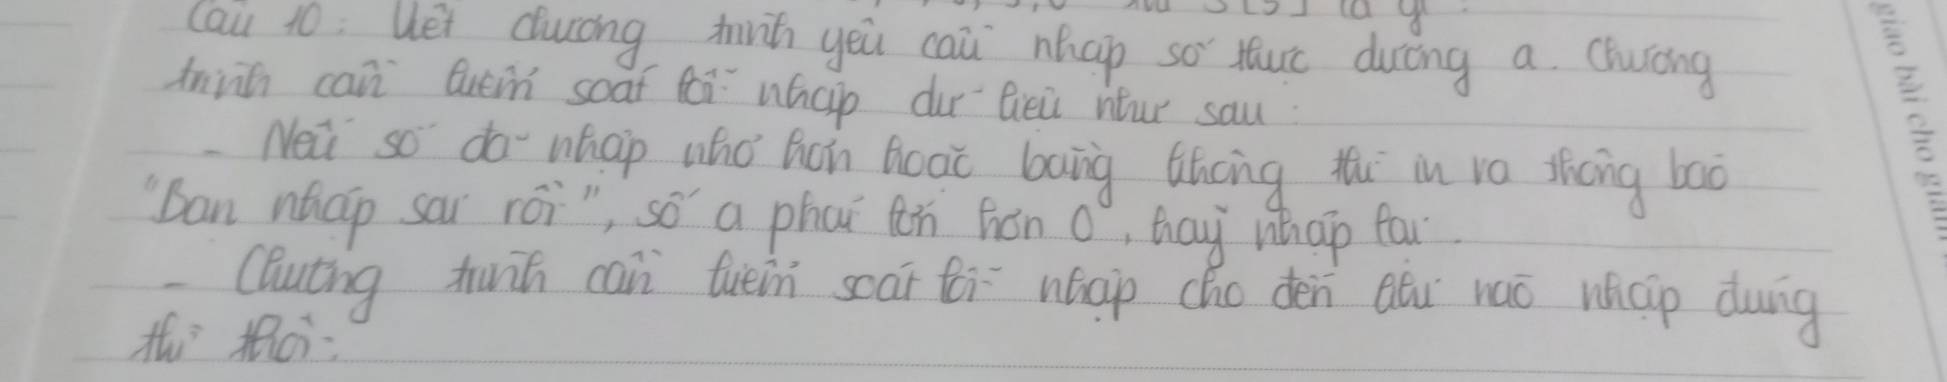 Câu 10: Viết chương trình yêu cầu nhập số thực dương a. Chương
trình cần kiểm soát lỗi nhập dữ liệu như sau:
- Nếu số đã nhập nhỏ hơn hoặc bằng không thì in ra thông báo
"Bạn nhập sai rồi", số a phải lớn hơn 0, hãy nhập lại.
- Chương trình cần kiểm soát lỗi nhập cho đến khi nào nhập đúng
thì thôi.
giao bài cho giảm